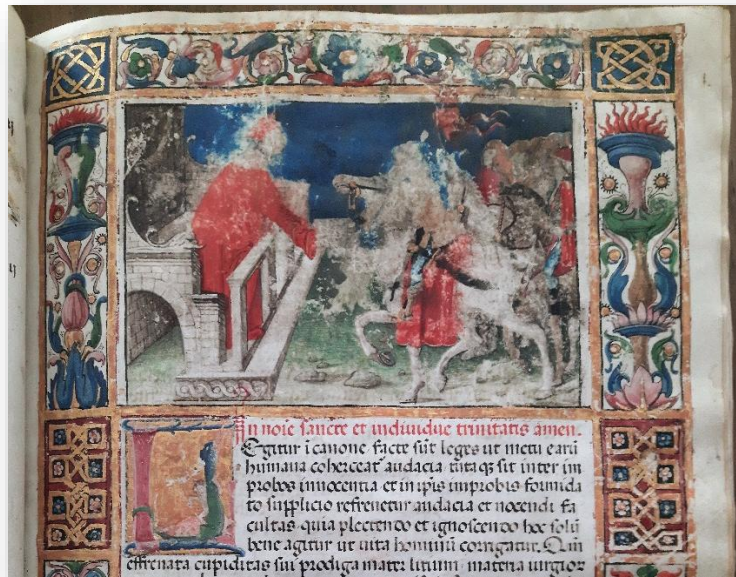 In noie sancte et indiuidue trinitatis amen.
LEgitur ī canone facte sūt leges ut metu earū
humana coherceat᷑ audacia tuta qꝫ sit inter im
probos innocentia et in ip̄is improbis formida
to supplicio refrenetur audacia et nocendi fa
cultas quia plectendo et ignoscendo hoc solū
bene agitur ut uita hominū corrigatur. Qm̄
effrenata cupiditas sui prodiga mater litium materia iurgior